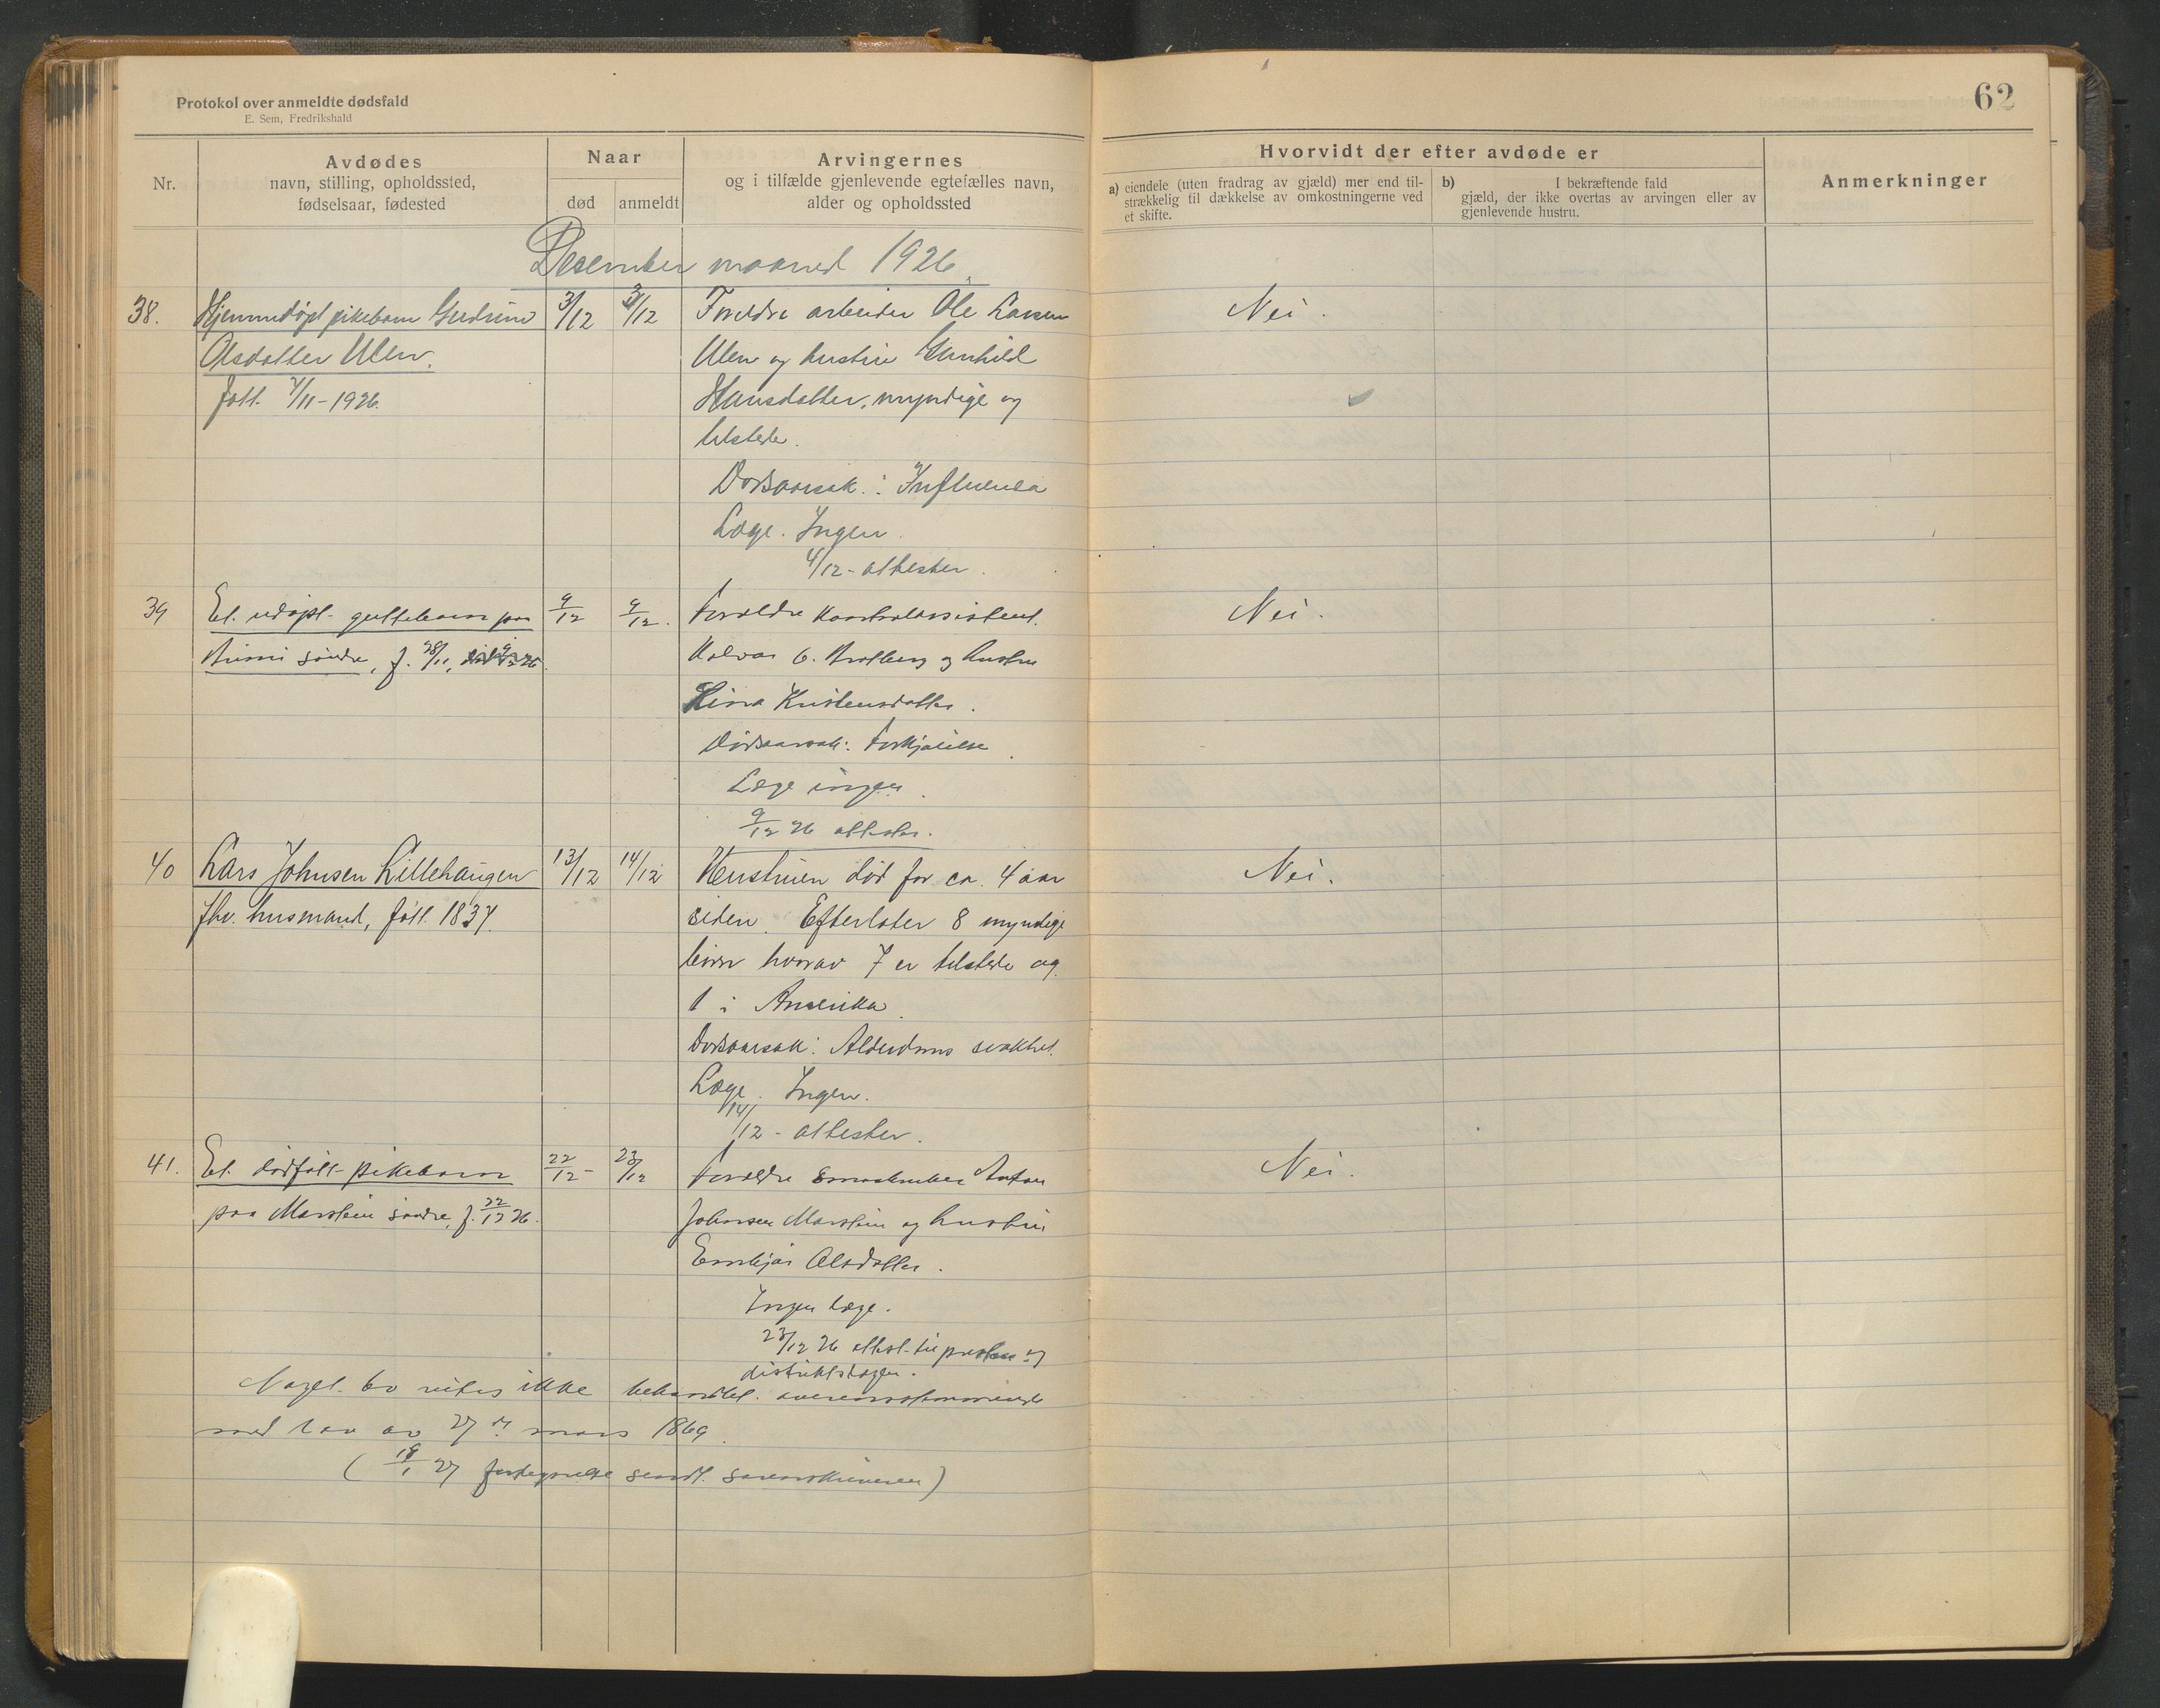 Protokol over anmeldte dødsfald
E. Sem, Fredrikshald
62
Nr.
Avdødes
navn, stilling, opholdssted,
fødselsaar, fødested
Naar
død
anmeldt
Arvingernes
og i tilfælde gjenlevende egtefælles navn,
alder og opholdssted
Hvorvidt der efter avdøde er
a) eiendele (uten fradrag av gjæld) mer end til-
strækkelig til dækkelse av omkostningerne ved
et skifte.
b) I bekræftende fald
gjæld, der ikke overtas av arvingen eller av
gjenlevende hustru.
Anmerkninger
Desember maaned 1926
38. Hjemmedøpt pikebarn Gudrun 3/12 3/12 Foreldre arbeider Ole Larsen Nei.
Olsdatter Ulen. Ulen og hustru Gunhild
født 7/11-1926. Hansdatter, myndige og
tilstede.
Dødsaarsak: Influensa
Læge. Ingen.
4/12 - attester.
39 Et. udøpt guttebarn paa 9/12 9/12. Foreldre kontrolassistent Nei.
søndre, f. 28/11, Halvor G. og hustru
Kristensdatter.
Dødsaarsak: Forkjølelse.
Læge ingen.
9/12 26 attester.
40 Lars Johnsen Lillehaugen 13/12 14/12 Hustruen død for ca. 4 aar Nei.
fhv. husmand, født 1837. siden. Efterlater 8 myndige
barn hvorav 7 er tilstede og
1 i Amerika.
Dødsaarsak: Alderdoms svakhet.
Læge. Ingen.
14/12 - attester.
41. Et. dødfødt pikebarn 22/12 - 23/12 Foreldre smaabruker Anton Nei.
paa Marstein søndre, f. 22/12 26. Johnsen Marstein og hustru
Olsdatter.
Ingen læge.
23/12 26 attest til presten og
distriktslægen.
Noget bo vites ikke behandlet overensstemmende
med lov av 27de mars 1869.
( 27 fortegnelse sendt sorenskriveren)